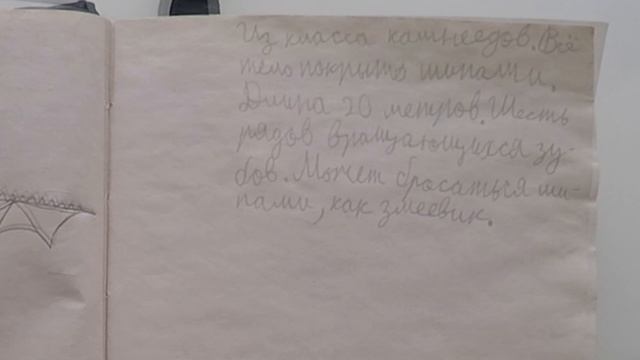 Из класса камнеедов. Всё
тело покрыто шипами.
Длина 20 метров. Шесть
рядов вращающихся зу-
бов. Может бросаться ши-
пами, как змеевик.